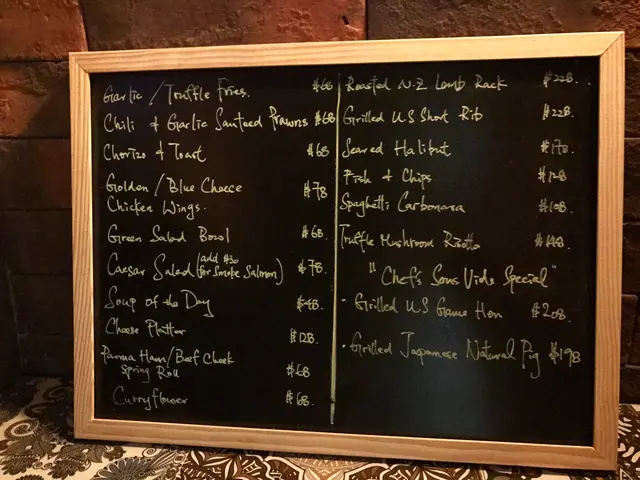 Garlic / Truffle Fries. $68
Chili & Garlic Sauteed Prawns $68
Chorizo & Toast $68
Golden / Blue Cheese $78
Chicken Wings.
Green Salad Bowl $68.
Caesar Salad (add $30 for Smoke Salmon) $78.
Soup of the Day $48.
Cheese Platter $128.
Parma Ham / Beef Cheek
Spring Roll $68
Curryflower $68.
Roasted N.Z Lamb Rack $228.
Grilled US Short Rib $228.
Seared Halibut $178.
Fish & Chips $128
Spaghetti Carbonara $108.
Truffle Mushroom Risotto
"Chef's Sous Vide Special"
· Grilled US Game Hen $208.
· Grilled Japanese Natural Pig $198